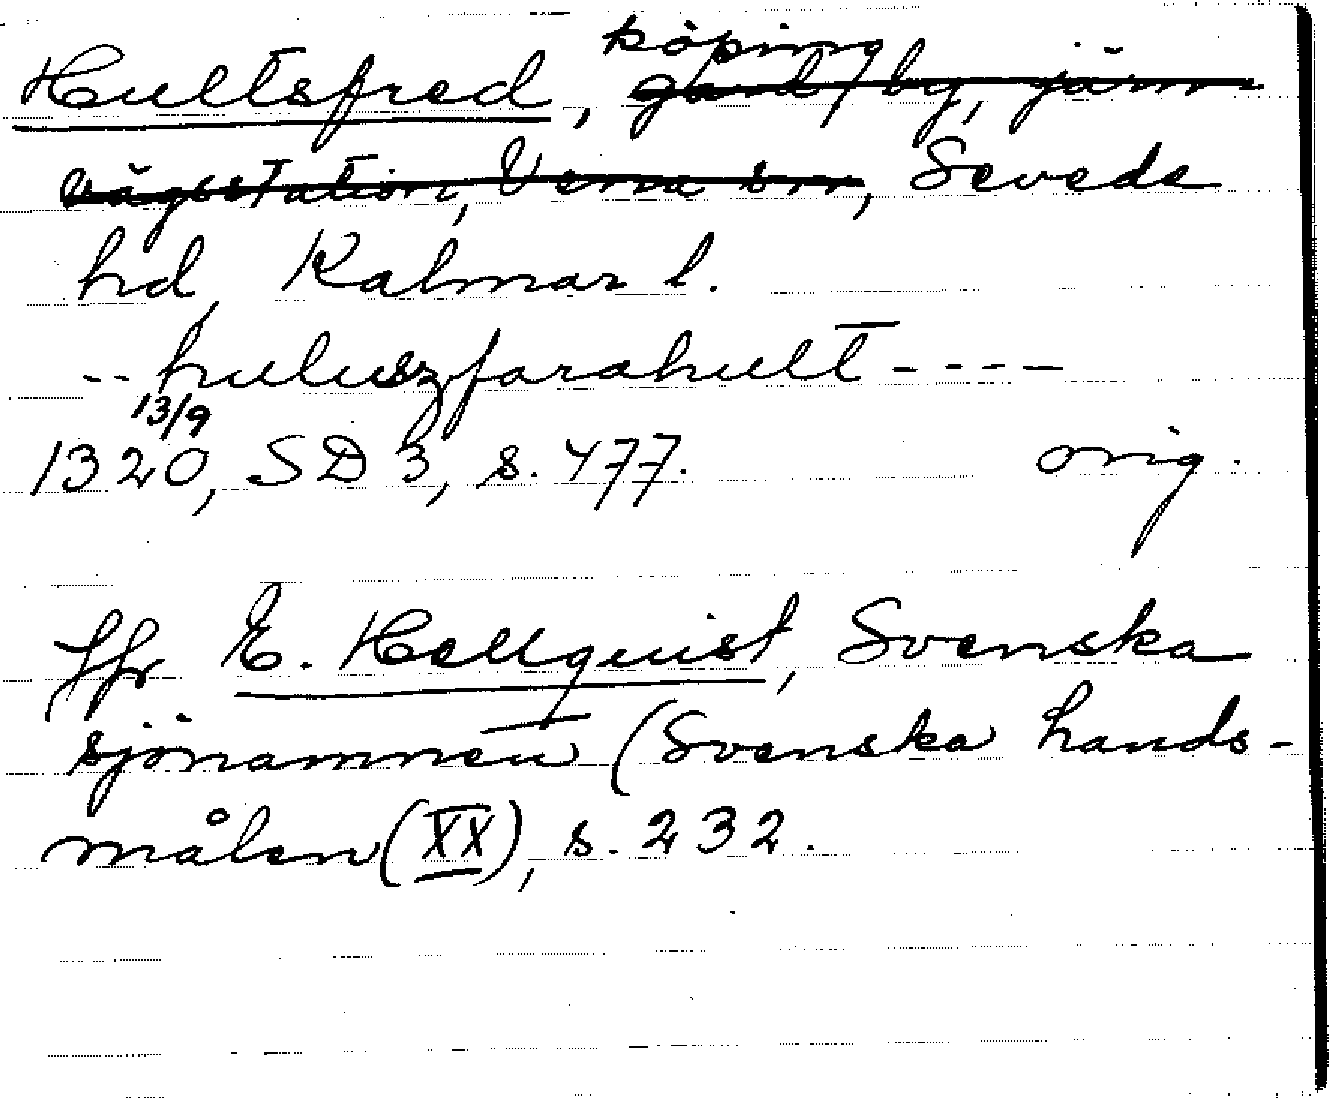 köping
Hultsfred, gård/by, järn-
vägsstation, Vena sn, Sevede
hd, Kalmar l.
-- huluszfarahult ----
13/9
1320, SD 3, s. 477. orig.
Jfr E. Hellquist, Svenska
sjönamnen (Svenska lands-
målen (XX), s. 232.